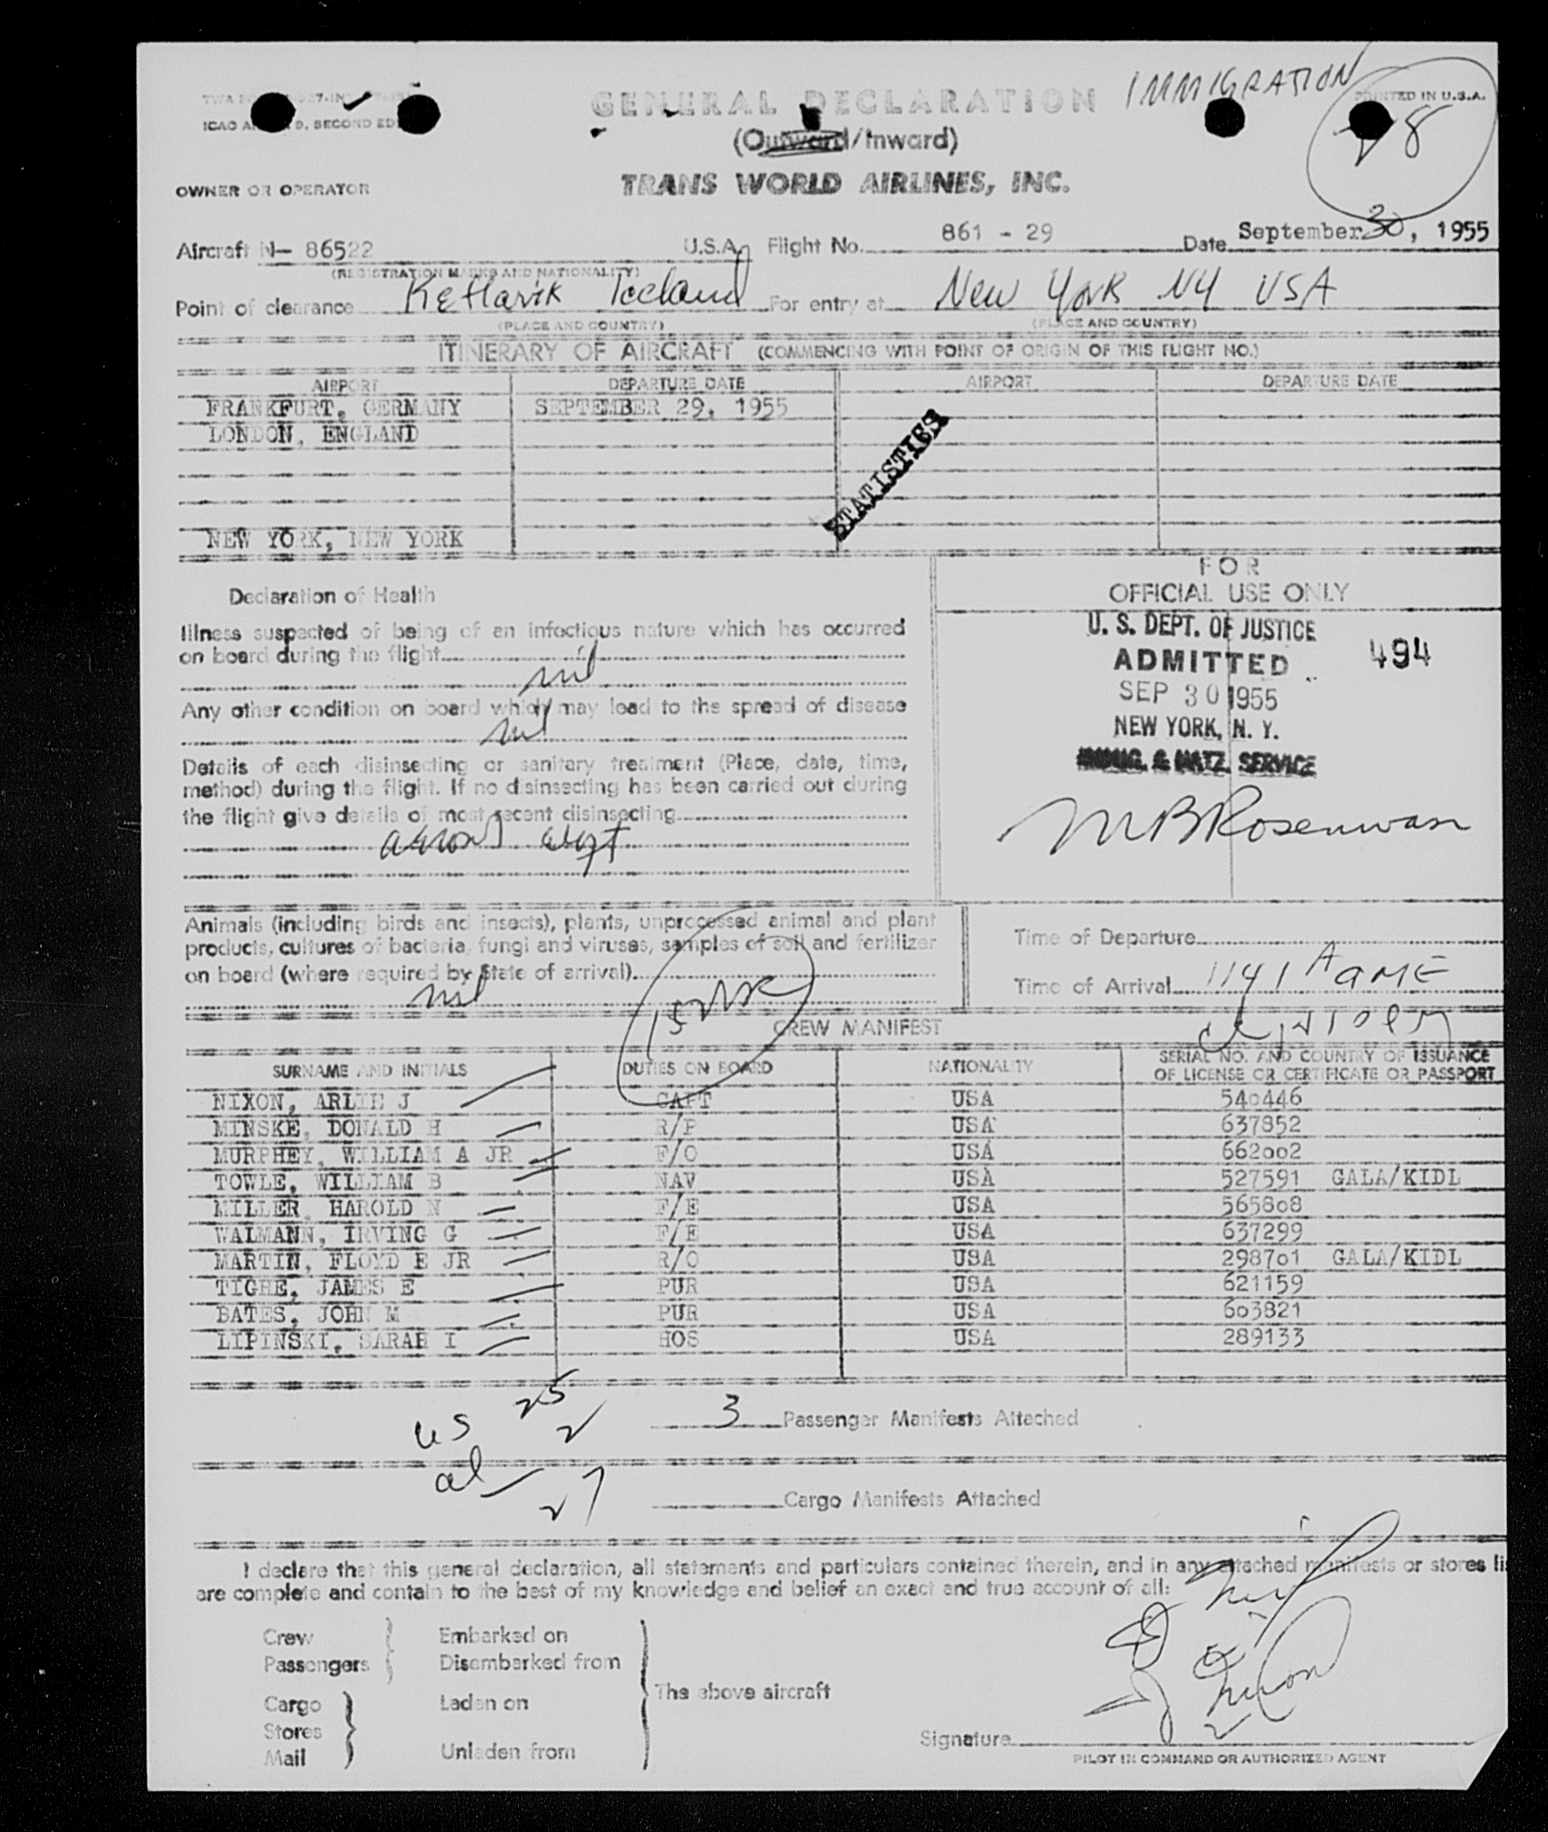 IMMIGRATION
GENERAL DECLARATION
PRINTED IN U.S.A.
SECOND
(Outward/Inward)
8
OWNER OR OPERATOR
TRANS WORLD AIRLINES, INC.
Aircraft N- 86522 U.S.A. Flight No. 861 - 29 Date September 30, 1955
(REGISTRATION MARKS AND NATIONALITY)
Point of clearance Keflavik Iceland For entry at New York NY USA
(PLACE AND COUNTRY) (PLACE AND COUNTRY)
ITINERARY OF AIRCRAFT (COMMENCING WITH POINT OF ORIGIN OF THIS FLIGHT NO.)
AIRPORT DEPARTURE DATE AIRPORT DEPARTURE DATE
FRANKFURT, GERMANY SEPTEMBER 29, 1955
LONDON, ENGLAND
STATISTICS
NEW YORK, NEW YORK
FOR
OFFICIAL USE ONLY
Declaration of Health
Illness suspected of being of an infectious nature which has occurred
on board during the flight
nil
Any other condition on board which may lead to the spread of disease
nil
Details of each disinsecting or sanitary treatment (Place, date, time,
method) during the flight. If no disinsecting has been carried out during
the flight give details of most recent disinsecting
U. S. DEPT. OF JUSTICE
ADMITTED 494
SEP 30 1955
NEW YORK, N. Y.
IMMIG. & NATZ. SERVICE
MBRosenwasn
Animals (including birds and insects), plants, unprocessed animal and plant
products, cultures of bacteria, fungi and viruses, samples of soil and fertilizer
on board (where required by State of arrival)
nil
Time of Departure
Time of Arrival 1141 A
CREW MANIFEST
SURNAME AND INITIALS DUTIES ON BOARD NATIONALITY SERIAL NO. AND COUNTRY OF ISSUANCE
OF LICENSE OR CERTIFICATE OR PASSPORT
NIXON, ARLIE J CAPT USA 540446
MINSKE, DONALD H R/P USA 637852
MURPHEY, WILLIAM A JR F/O USA 662002
TOWLE, WILLIAM B NAV USA 527591 GALA/KIDL
MILLER, HAROLD N F/E USA 565808
WALMANN, IRVING G F/E USA 637299
MARTIN, FLOYD E JR R/O USA 298701 GALA/KIDL
TIGHE, JAMES E PUR USA 621159
BATES, JOHN M PUR USA 603821
LIPINSKI, SARAH I HOS USA 289133
us 25
3 Passenger Manifests Attached
al 2
27
Cargo Manifests Attached
I declare that this general declaration, all statements and particulars contained therein, and in any attached manifests or stores lis
are complete and contain to the best of my knowledge and belief an exact and true account of all:
Crew Embarked on
Passengers Disembarked from
The above aircraft
Cargo Laden on
Stores
Mail Unladen from
Signature
PILOT IN COMMAND OR AUTHORIZED AGENT